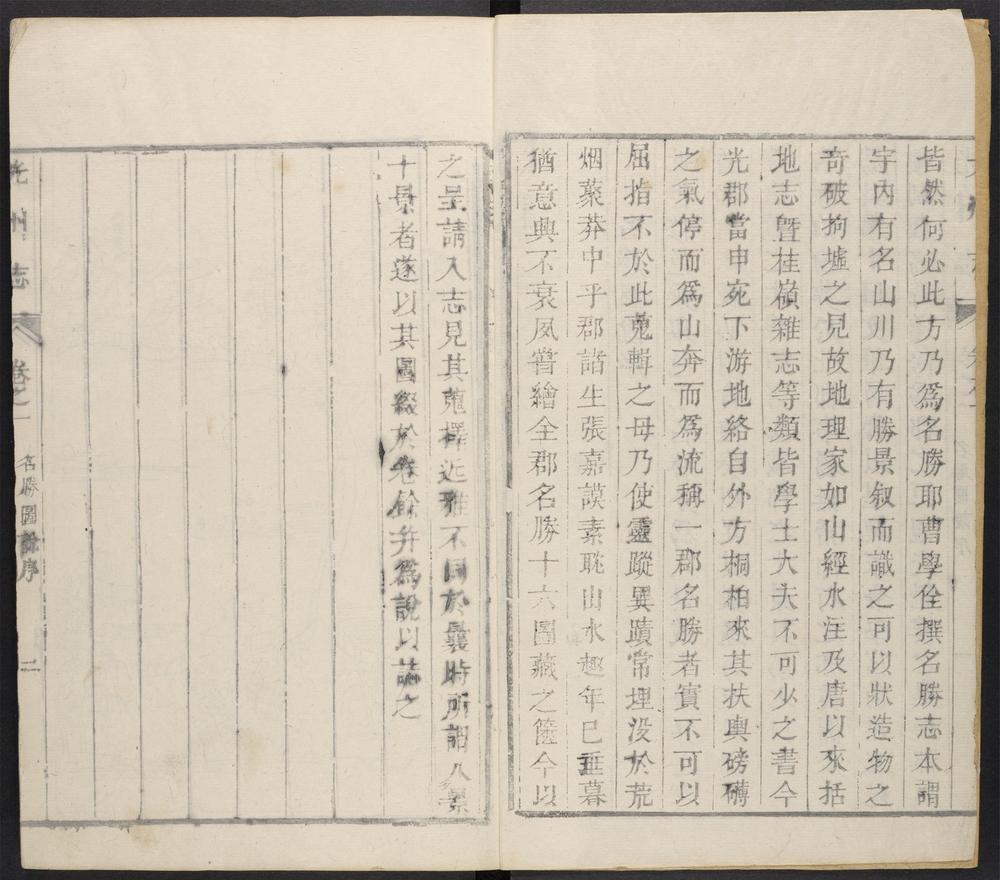 皆然何必此方乃爲名勝耶曹學佺撰名勝志本謂
宇內有名山川乃有勝景叙而識之可以狀造物之
奇破拘墟之見故地理家如山經水注及唐以來括
地志曁桂嶺雜志等類皆學士大夫不可少之書今
光郡當申宛下游地絡自外方桐柏來其扶輿磅礴
之氣停而爲山奔而爲流稱一郡名勝者實不可以
屈指不於此蒐輯之毋乃使靈蹤異蹟常埋没於荒
烟蔂莽中乎郡諸生張嘉謨素耽山水趣年已垂暮
猶意興不衰夙嘗繪全郡名勝十六圖藏之篋今以
之呈請入志見其蒐擇近雅不同於曩時所謂八景
十景者遂以其圖綴於卷餘并爲說以誌之
光州志
卷之一
名勝圖餘序
二